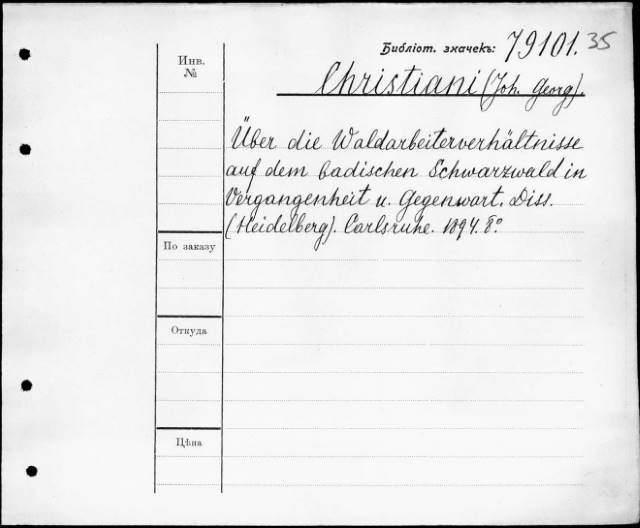 Библіот. значекъ: 79101. 35
Инв.
№
Christiani (Joh. Georg).
Über die Waldarbeiterverhältnisse
auf dem badischen Schwarzwald in
Vergangenheit u. Gegenwart. Diss.
(Heidelberg). Carlsruhe. 1894. 8°
По заказу
Откуда
Цѣна